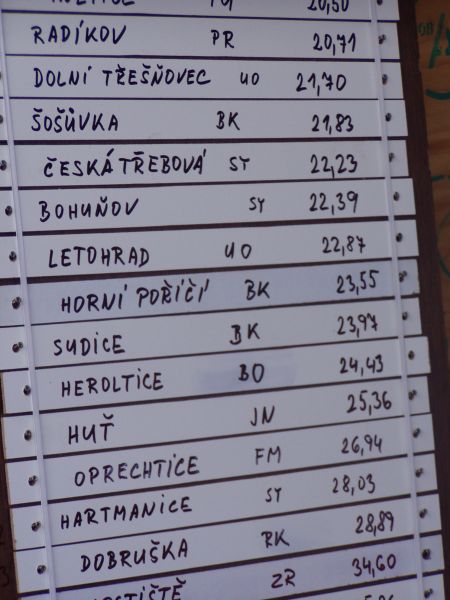 20,50
RADÍKOV PR 20,71
DOLNÍ TŘEŠŇOVEC UO 21,70
ŠOŠŮVKA BK 21,83
ČESKÁ TŘEBOVÁ SY 22,23
BOHUŇOV SY 22,39
LETOHRAD UO 22,87
HORNÍ POŘÍČÍ BK 23,55
SUDICE BK 23,97
HEROLTICE BO 24,43
HUŤ JN 25,36
OPRECHTICE FM 26,94
HARTMANICE SY 28,03
DOBRUŠKA RK 28,89
ZR 34,60